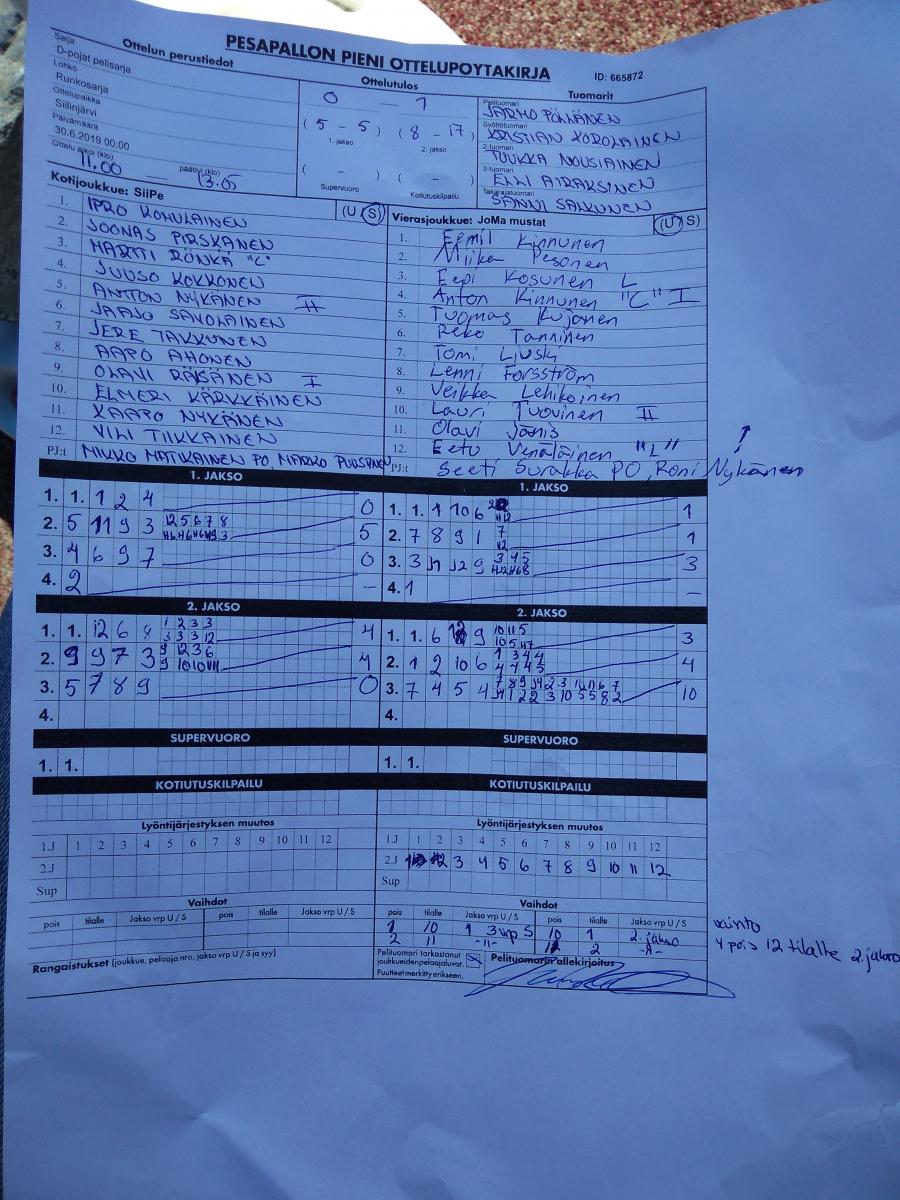 PESAPALLON PIENI OTTELUPOYTAKIRJA
ID: 665872
Sarja
Ottelun perustiedot
D-pojat pelisarja
Lohko
Runkosarja
Ottelupaikka
Siilinjärvi
Päivämäärä
30.6.2019 00:00
Ottelu alkoi (klo) päättyi (klo)
11.00 — 13.05
Ottelutulos
0 — 1
(5 - 5) (8 - 17)
1. jakso 2. jakso
( - ) ( - )
Supervuoro Kotiutuskilpailu
Tuomarit
Pelituomari
JARMO PÖLLÄNEN
Syöttötuomari
KRISTIAN KOROLAINEN
2-tuomari
TUUKKA NOUSIAINEN
3-tuomari
ELLI AIRAKSINEN
Takarajatuomari
SANNI SAUKUNEN
Kotijoukkue: SiiPe (U S)
1. IPRO KOHULAINEN
2. JOONAS PIRSKANEN
3. MARTTI RÖNKÄ "C"
4. JUUSO KOKKONEN
5. ANTTON NYKÄNEN II
6. JAAJO SAVOLAINEN
7. JERE TAKKUNEN
8. AAPO AHONEN
9. OLAVI RÄSÄNEN I
10. ELMERI KÄRKKÄINEN
11. KAAPO NYKÄNEN
12. VILI TIIKKAINEN
PJ:t MIKKO MATIKAINEN PO, MARKO PUUSTINEN
Vierasjoukkue: JoMa mustat (U S)
1. Eemil Kinnunen
2. Miika Pesonen
3. Eepi Kosunen L
4. Anton Kinnunen "C" I
5. Tuomas Kujanen
6. Reko Tanninen
7. Tomi Livski
8. Lenni Forsström
9. Veikka Lehikoinen
10. Lauri Tuovinen II
11. Olavi Jänis
12. Eetu Venäläinen "L"
PJ:t Seeti Surakka PO, Roni Nykänen
1. JAKSO
1. 1. 1 2 4 0
2. 5 11 9 3 12 5 6 7 8 5
3. 4 6 9 7 0
4. 2 -
1. JAKSO
1. 1. 1 10 6 1
2. 7 8 9 1 7 1
3. 3 9 3 4 5 3
4. 1 -
2. JAKSO
1. 1. 12 6 8 1 2 3 3 4
3 3 3 12
2. 9 9 7 3 9 12 3 6 4
3. 5 7 8 9 0
4.
2. JAKSO
1. 1. 6 9 10 11 5 3
2. 1 2 10 6 1 3 4 4 4
4 4 4 5
3. 7 4 5 4 10
4.
SUPERVUORO
1. 1.
SUPERVUORO
1. 1.
KOTIUTUSKILPAILU
KOTIUTUSKILPAILU
Lyöntijärjestyksen muutos
1.J 1 2 3 4 5 6 7 8 9 10 11 12
2.J
Sup
Lyöntijärjestyksen muutos
1.J 1 2 3 4 5 6 7 8 9 10 11 12
2.J 3 4 5 6 7 8 9 10 11 12
Sup
Vaihdot
pois tilalle Jakso vrp U / S pois tilalle Jakso vrp U / S
Vaihdot
pois tilalle Jakso vrp U / S pois tilalle Jakso vrp U / S
1 10 1 3 vrp S 10 1 2. jakso
2 11 -11- 2 -11-
vaihto
4 pois 12 tilalle 2. jakso
Rangaistukset (joukkue, pelaaja nro, jakso vrp U / S ja syy)
Pelituomari tarkastanut
joukkueiden pelaajaluvat.
Puutteet merkitty erikseen.
Pelituomarin allekirjoitus